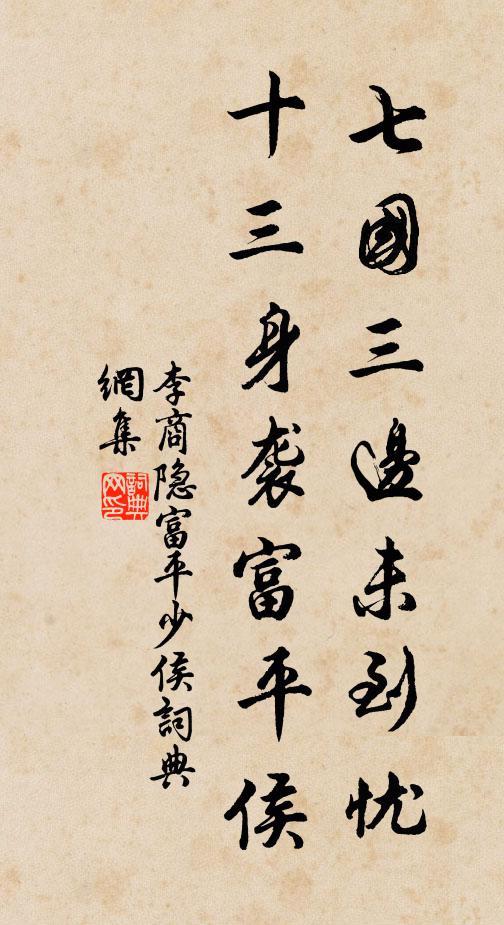 七國三邊未到忧
十三身袭富平侯
李商隐富平少侯詞典
網集
詞典
网印